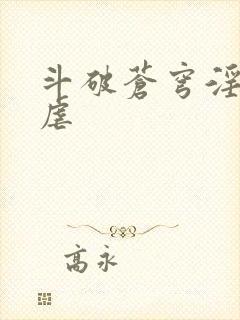 斗破苍穹淫
虐
高永